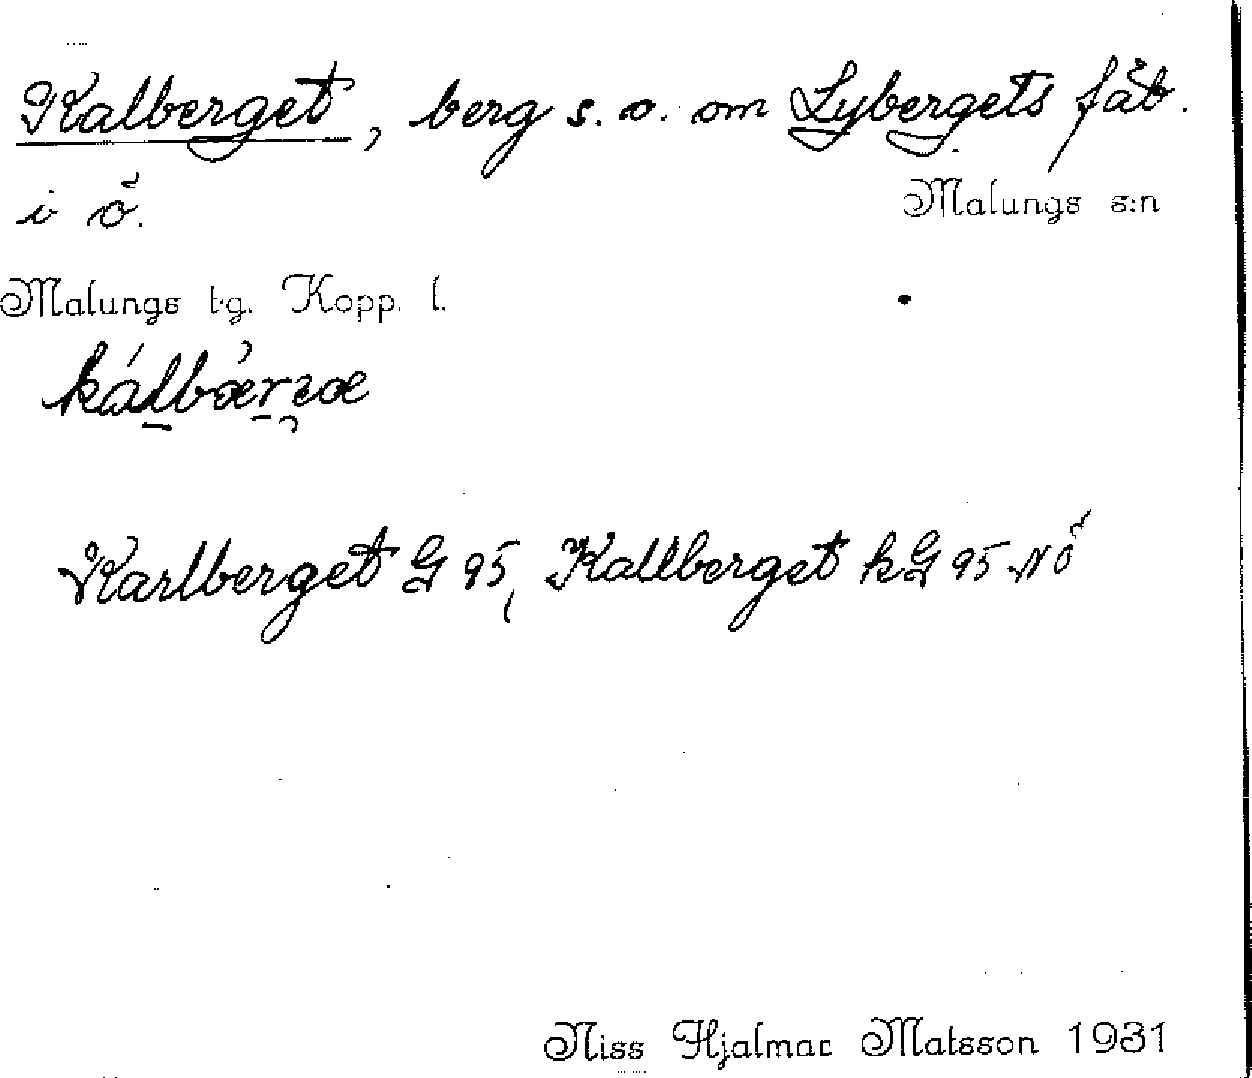 Kalberget, berg s. o. om Lybergets fäb.
i ö.
Malungs s:n
Malungs t.g. Kopp. l.
Karlberget G 95, Kallberget kG 95 NÖ
Niss Hjalmar Matsson 1931